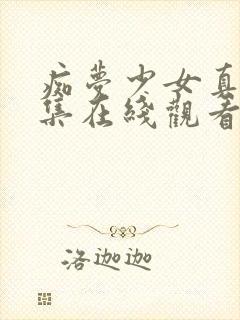 痴夢少女真
集在綫觀看
洛迦迦